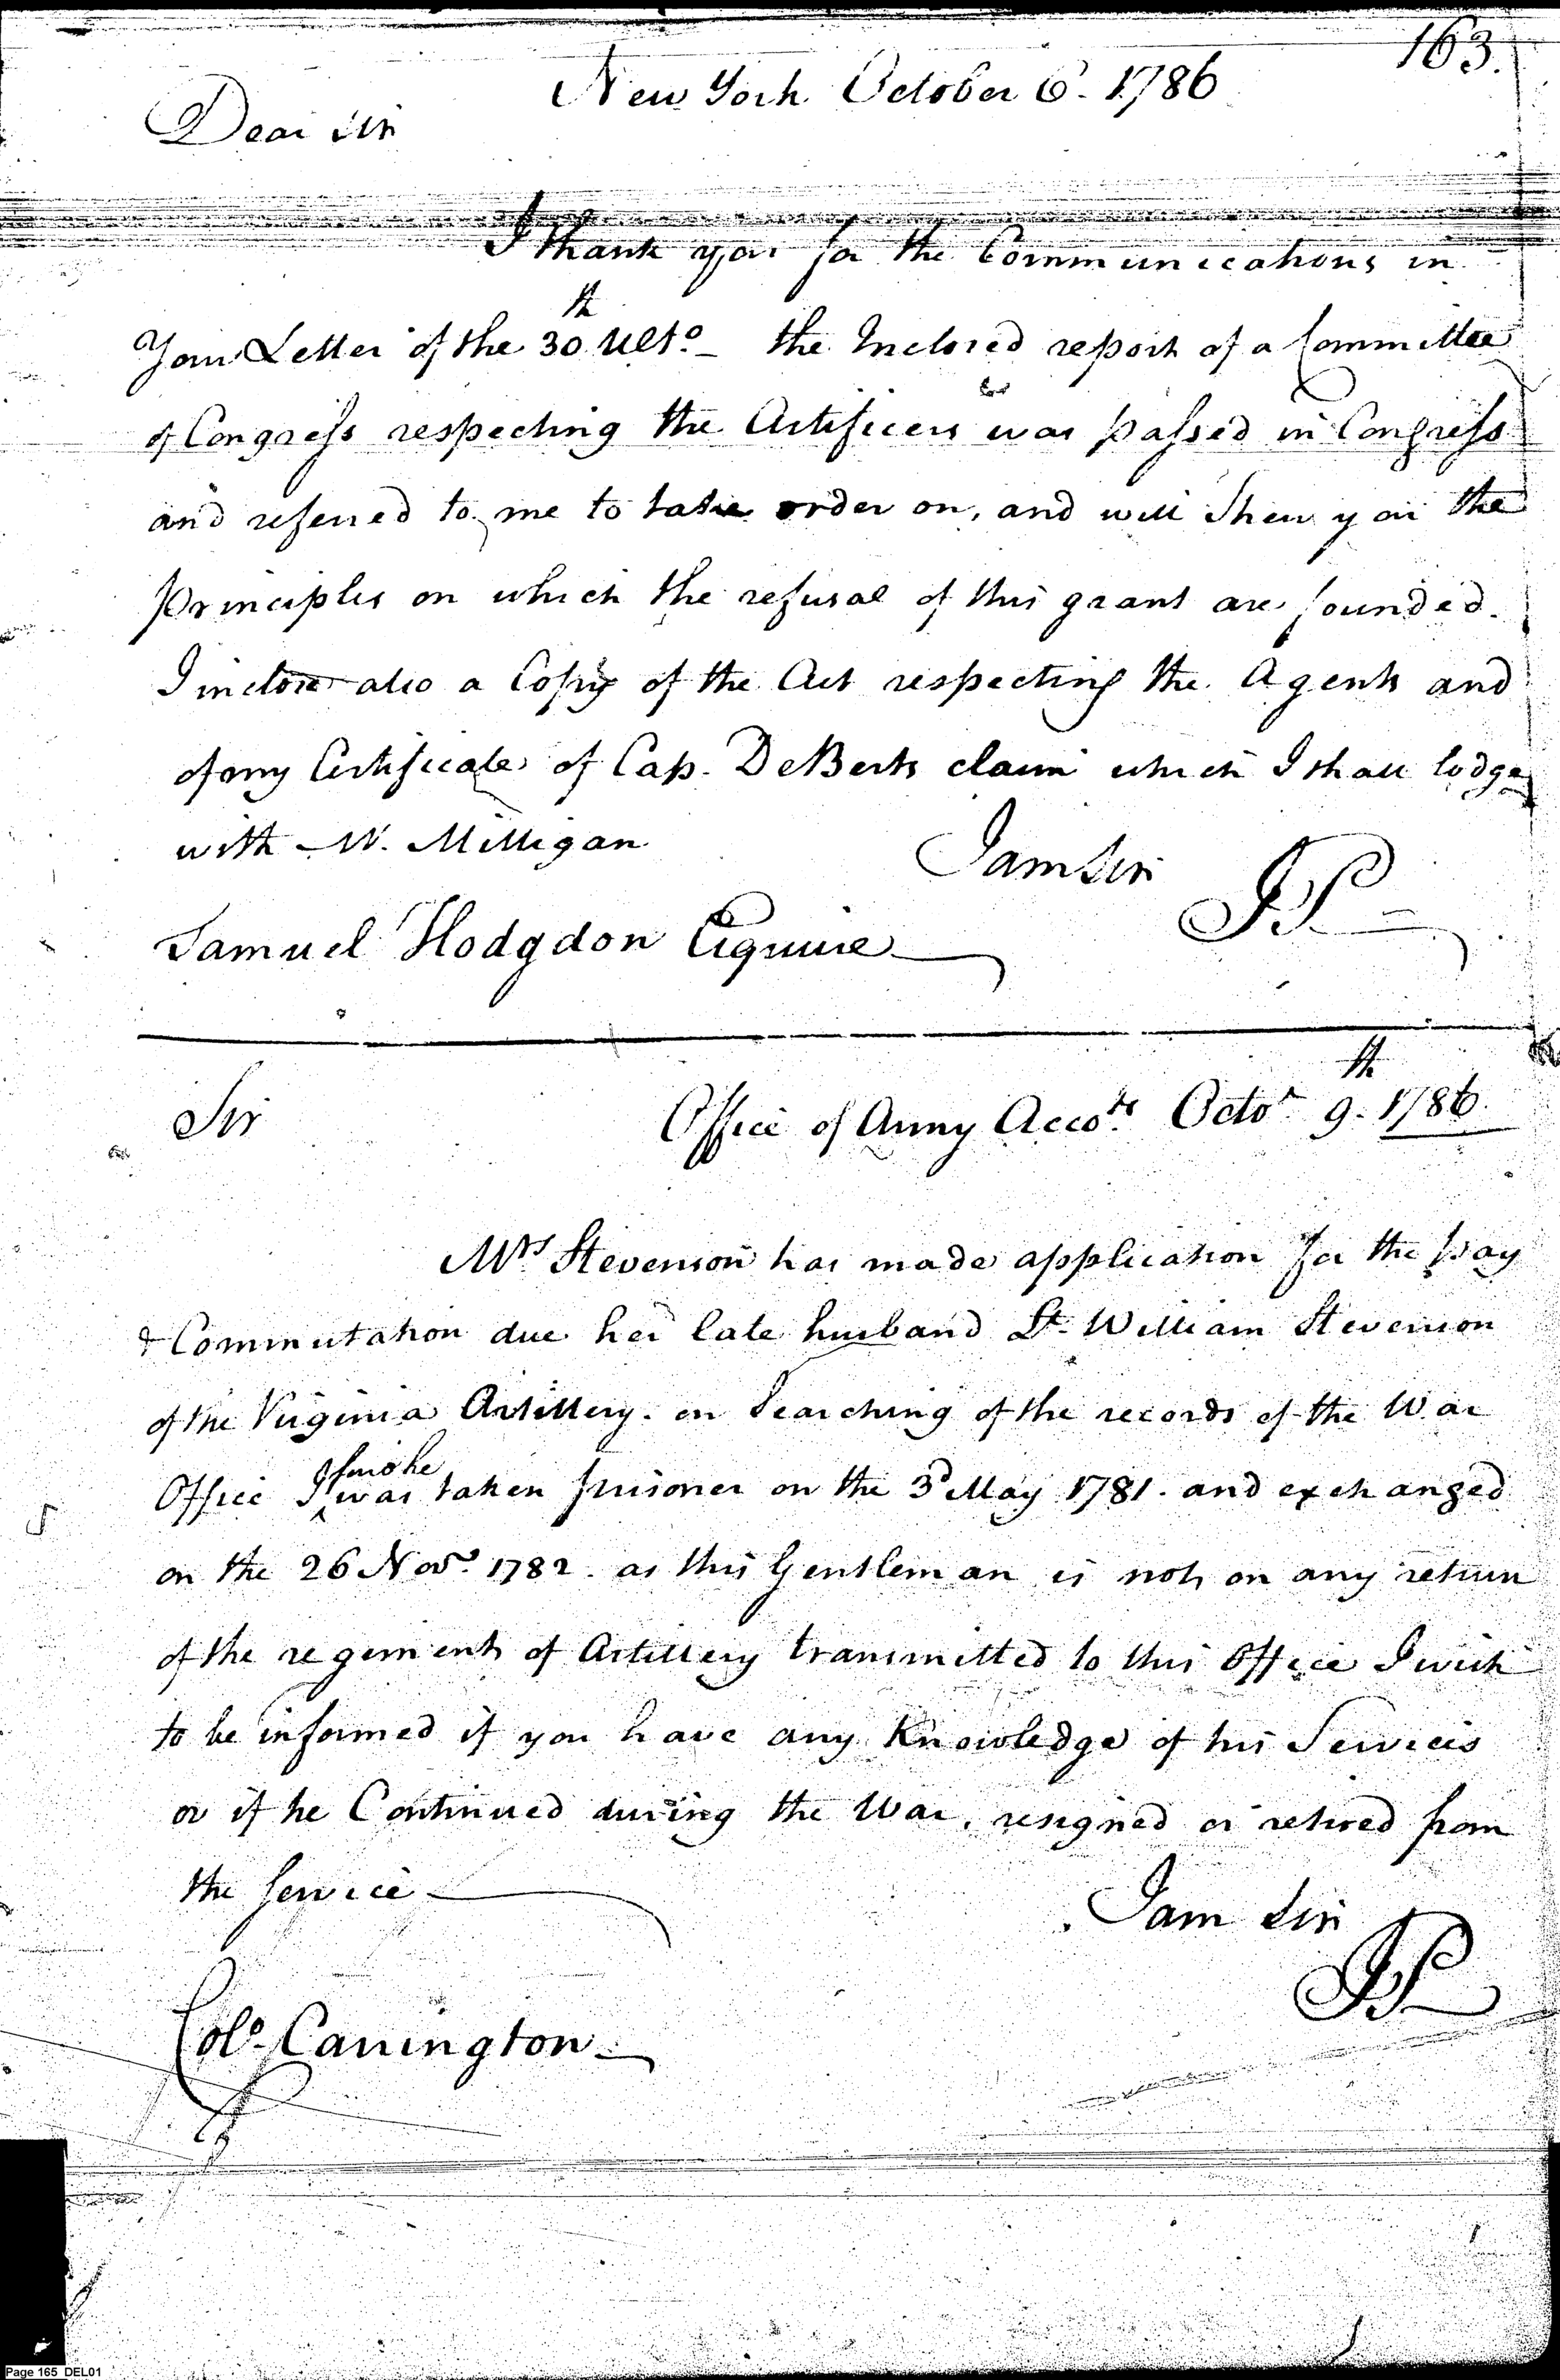 163.
New York October 6. 1786
Dear Sir
I thank you for the Communications in
Your Letter of the 30th Ulto_ the Inclosed report of a Committee
of Congress respecting the Artificers was passed in Congress
and referred to me to take order on, and will Shew you the
Principles on which the refusal of this grant are founded.
I inclose also a Copy of the Act respecting the Agents and
of my Certificate of Cap. DeBerts claim which I shall lodge
with Mr. Milligan
I am Sir
JP
Samuel Hodgdon Esquire
Sir
Office of Army Accots. Octor. 9th. 1786.
Mrs Stevenson has made application for the pay
& Commutation due her late husband Lt. William Stevenson
of the Virginia Artillery. on Searching of the records of the War
Office I find he was taken prisoner on the 3d May 1781. and exchanged
on the 26 Novr. 1782. as this Gentleman is not on any return
of the regiments of Artillery transmitted to this Office I wish
to be informed if you have any Knowledge of his Services
or if he Continued during the War, resigned or retired from
the Service
I am Sir
JP
Colo. Carrington
Page 165 DEL01